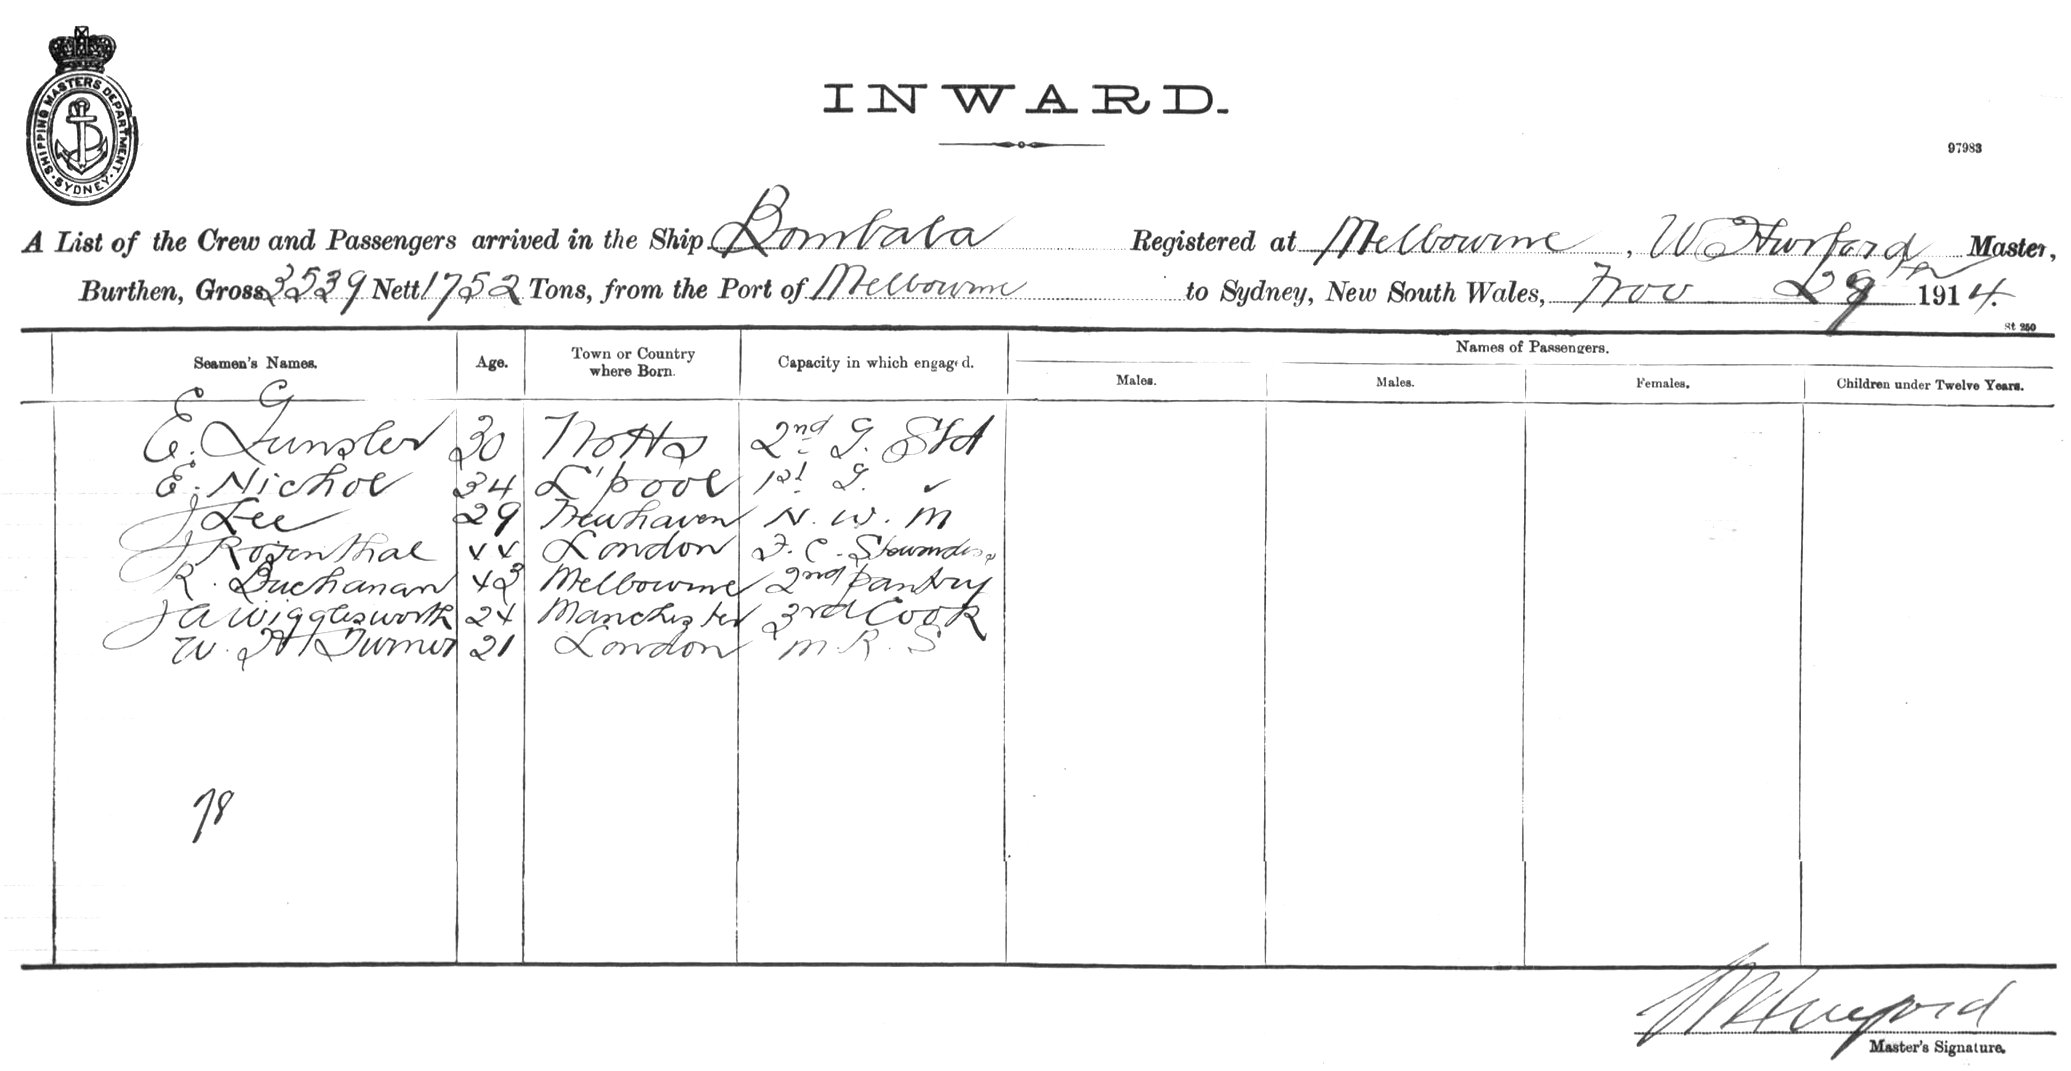 SHIPPING MASTERS DEPARTMENT. SYDNEY.
INWARD.
97983
A List of the Crew and Passengers arrived in the Ship Bombala Registered at Melbourne, W Hurford Master,
Burthen, Gross 3539 Nett 1752 Tons, from the Port of Melbourne to Sydney, New South Wales, Nov 29th 1914.
St 250
Seamen's Names. Age. Town or Country where Born. Capacity in which engaged. Names of Passengers.
Males. Males. Females. Children under Twelve Years.
E G
E. 30 Notts 2nd G. Std
E. Nichol 34 L'pool 1st G. "
J Lee 29 Newhaven N. W. M
J Rosenthal 44 London F. C. Stewardess
R. Buchanan 43 Melbourne 2nd pantry
J A Wigglesworth 24 Manchester 3rd Cook
W. H Turner 21 London M. R. S
78
Master's Signature.